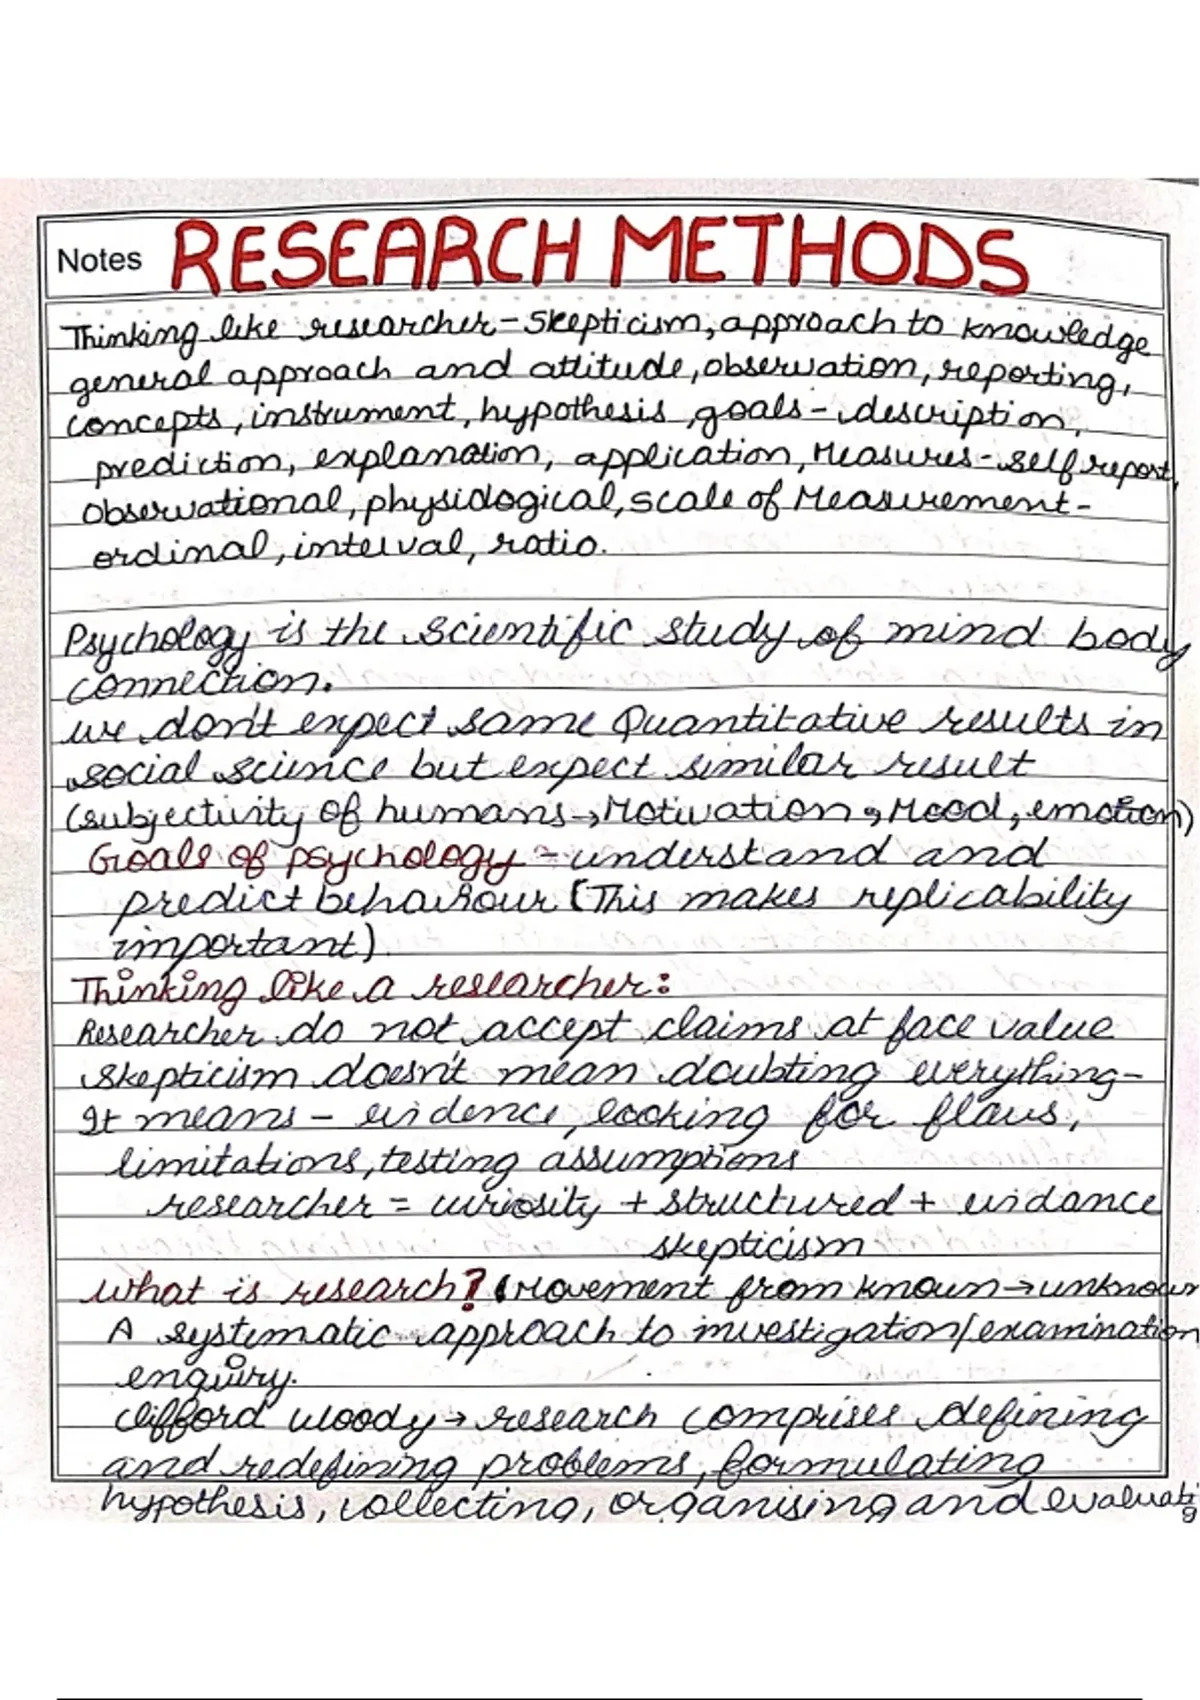 Notes RESEARCH METHODS
Thinking like researcher - Skepticism, approach to knowledge
general approach and attitude, observation, reporting,
concepts, instrument, hypothesis, goals - description,
prediction, explanation, application, Measures - self report,
Observational, physiological, scale of Measurement -
ordinal, interval, ratio.
Psychology is the scientific study of mind body
connection.
we don't expect same Quantitative results in
social science but expect similar result
(subjectivity of humans → Motivation, Mood, emotion)
Goals of psychology - understand and
predict behaviour (This makes replicability
important)
Thinking like a researcher:
Researcher do not accept claims at face value
Skepticism doesn't mean doubting everything -
It means - evidence, looking for flaws,
limitations, testing assumptions
researcher = curiosity + structured + evidance
skepticism
What is research? (Movement from known → unknown
A systematic approach to investigation/examination
enquiry.
Clifford Woody → research comprises defining
and redefining problems, formulating
hypothesis, collecting, organising and evaluating